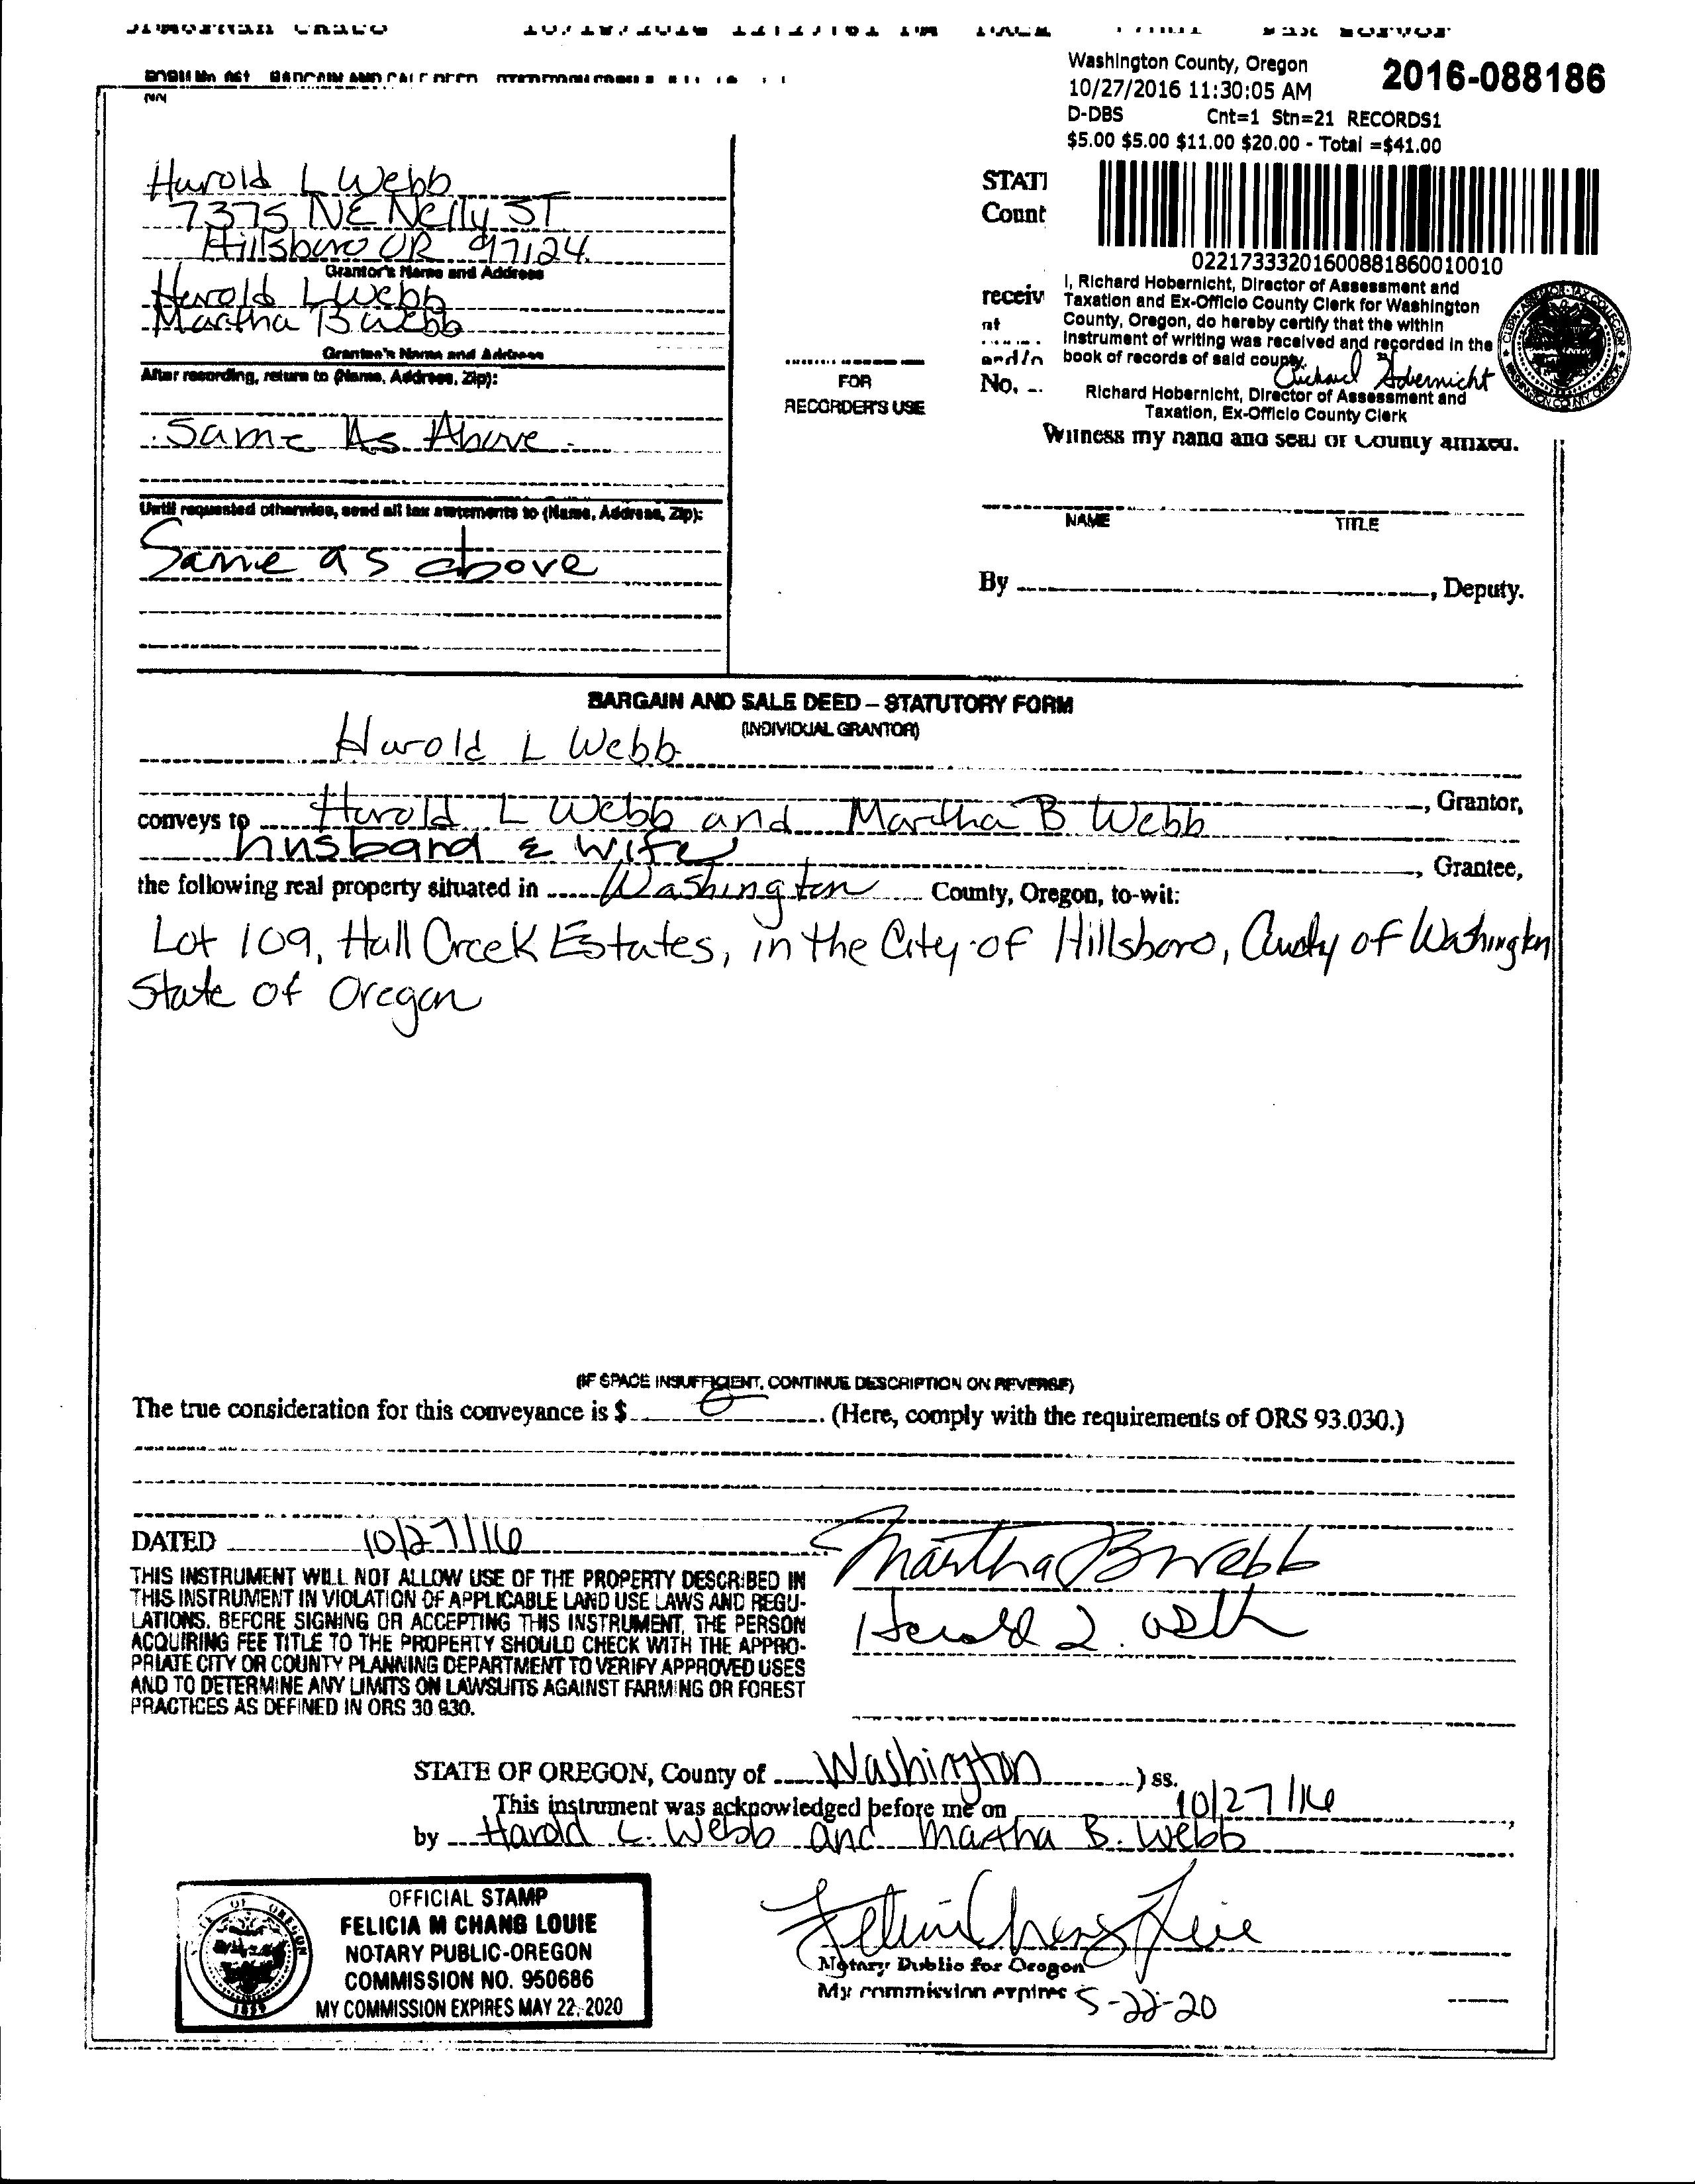 Washington County, Oregon 2016-088186
10/27/2016 11:30:05 AM
D-DBS Cnt=1 Stn=21 RECORDS1
$5.00 $5.00 $11.00 $20.00 - Total =$41.00
NN
Harold L Webb
7375 NE Neilly ST
Hillsboro OR 97124
Grantor's Name and Address
Harold L Webb
Martha B Webb
Grantee's Name and Address
After recording, return to (Name, Address, Zip):
Same As Above
Until requested otherwise, send all tax statements to (Name, Address, Zip):
Same as above
FOR
RECORDER'S USE
STAT
Count
receiv
at
and/o
No.
02217333201600881860010010
I, Richard Hobernicht, Director of Assessment and
Taxation and Ex-Officio County Clerk for Washington
County, Oregon, do hereby certify that the within
instrument of writing was received and recorded in the
book of records of said county.
Richard Hobernicht
Richard Hobernicht, Director of Assessment and
Taxation, Ex-Officio County Clerk
Witness my hand and seal of County affixed.
NAME TITLE
By , Deputy.
BARGAIN AND SALE DEED – STATUTORY FORM
(INDIVIDUAL GRANTOR)
Harold L Webb
, Grantor,
conveys to Harold L Webb and Martha B Webb
husband & wife , Grantee,
the following real property situated in Washington County, Oregon, to-wit:
Lot 109, Hall Creek Estates, in the City of Hillsboro, County of Washington
State of Oregon
(IF SPACE INSUFFICIENT, CONTINUE DESCRIPTION ON REVERSE)
The true consideration for this conveyance is $ 0 . (Here, comply with the requirements of ORS 93.030.)
DATED 10/27/16
Martha B Webb
Harold L. Webb
THIS INSTRUMENT WILL NOT ALLOW USE OF THE PROPERTY DESCRIBED IN
THIS INSTRUMENT IN VIOLATION OF APPLICABLE LAND USE LAWS AND REGU-
LATIONS. BEFORE SIGNING OR ACCEPTING THIS INSTRUMENT, THE PERSON
ACQUIRING FEE TITLE TO THE PROPERTY SHOULD CHECK WITH THE APPRO-
PRIATE CITY OR COUNTY PLANNING DEPARTMENT TO VERIFY APPROVED USES
AND TO DETERMINE ANY LIMITS ON LAWSUITS AGAINST FARMING OR FOREST
PRACTICES AS DEFINED IN ORS 30.930.
STATE OF OREGON, County of Washington ) ss.
This instrument was acknowledged before me on 10/27/16 ,
by Harold L. Webb and Martha B. Webb
OFFICIAL STAMP
FELICIA M CHANG LOUIE
NOTARY PUBLIC-OREGON
COMMISSION NO. 950686
MY COMMISSION EXPIRES MAY 22, 2020
Felicia Chang Louie
Notary Public for Oregon
My commission expires 5-22-20